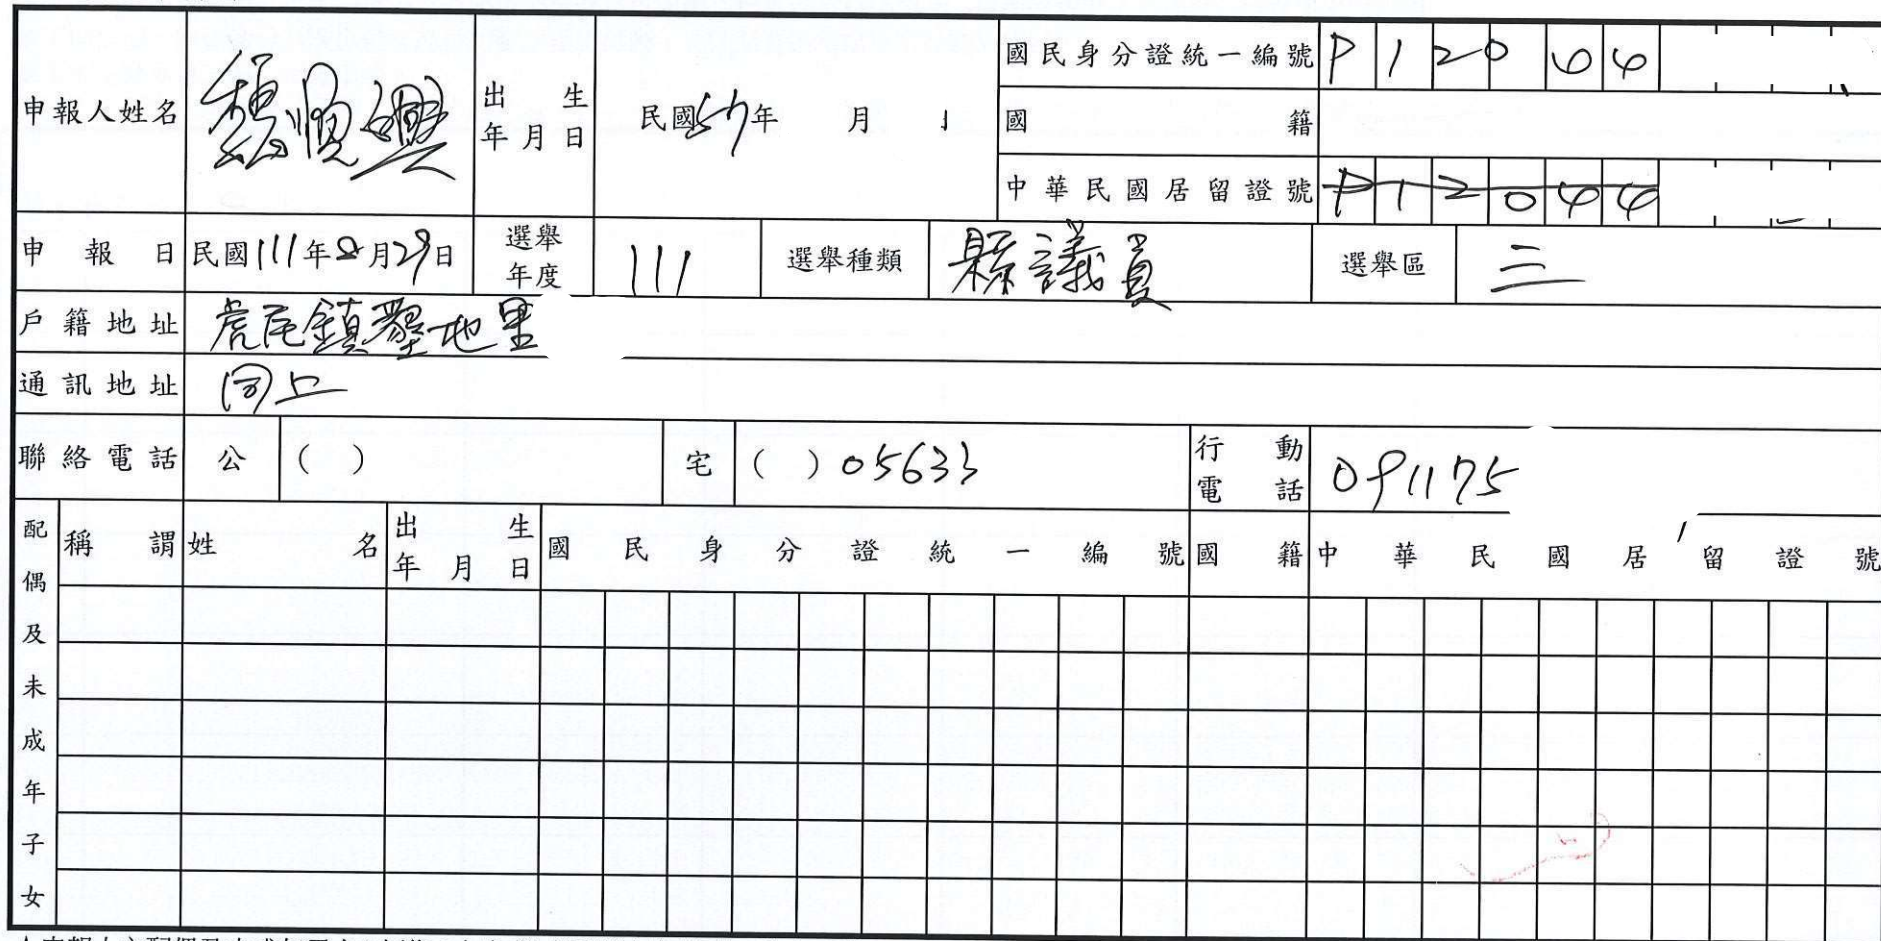 申報人姓名 魏 興 出生年月日 民國57年 月 國民身分證統一編號 P12044
國籍
中華民國居留證號 P12044
申報日 民國111年8月29日 選舉年度 111 選舉種類 縣議員 選舉區 三
戶籍地址 虎尾鎮墾地里
通訊地址 同上
聯絡電話 公 ( ) 宅 ( ) 05633 行動電話 091175
配偶及未成年子女 稱謂 姓名 出生年月日 國民身分證統一編號 國籍 中華民國居留證號